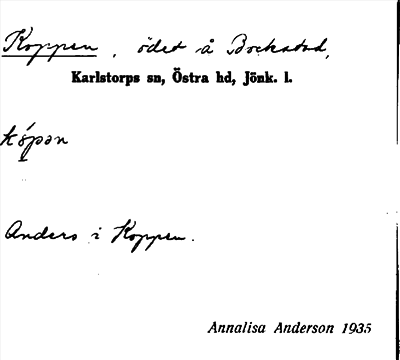 Koppen, ödet å Bockstad,
Karlstorps sn, Östra hd, Jönk. l.
kópən
Anders i Koppen.
Annalisa Anderson 1935